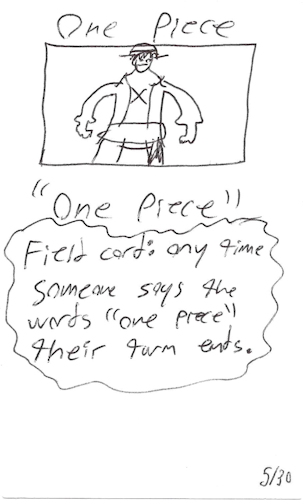 One Piece
"One Piece"
Field card: any time
someone says the
words "one piece"
their turn ends.
5/30